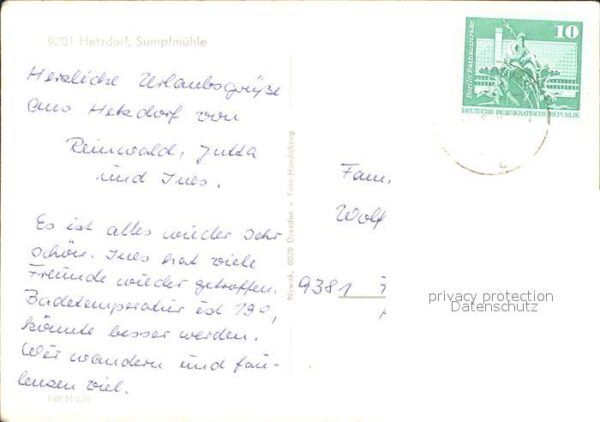 9201 Hetzdorf, Sumpfmühle
Herzliche Urlaubsgrüße
aus Hetzdorf von
Reinwald, Jutta
und Ines.
Es ist alles wieder sehr
schön. Ines hat viele
Freunde wieder getroffen.
Badetemperatur ist 19°,
könnte besser werden.
Wir wandern und fau-
lenzen viel.
Nowak, 8020 Dresden - Foto Handabzug
10
Berlin, Rathausstraße
DEUTSCHE DEMOKRATISCHE REPUBLIK
Fam.
Wolf
9381
privacy protection
Datenschutz